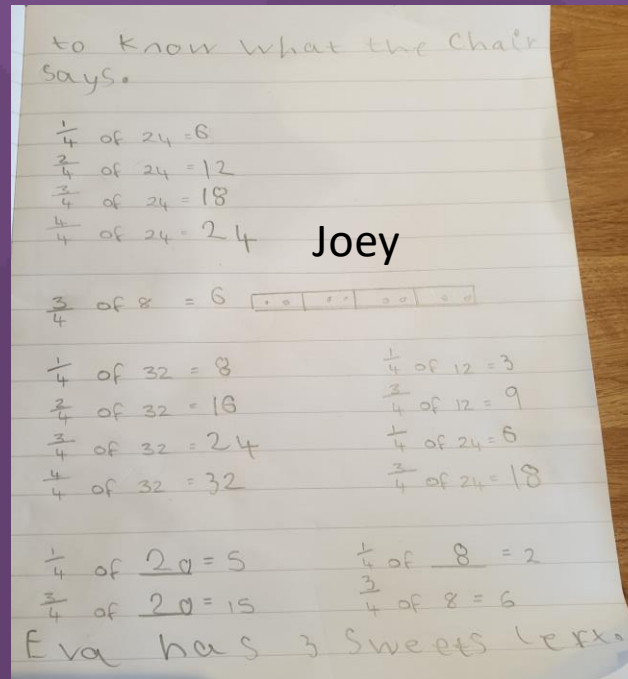 to know what the Chair
says.
1/4 of 24 = 6
2/4 of 24 = 12
3/4 of 24 = 18
4/4 of 24 = 24
Joey
3/4 of 8 = 6
1/4 of 32 = 8
2/4 of 32 = 16
3/4 of 32 = 24
4/4 of 32 = 32
1/4 of 12 = 3
3/4 of 12 = 9
1/4 of 24 = 6
3/4 of 24 = 18
1/4 of 20 = 5
3/4 of 20 = 15
1/4 of 8 = 2
3/4 of 8 = 6
Eva has 3 Sweets